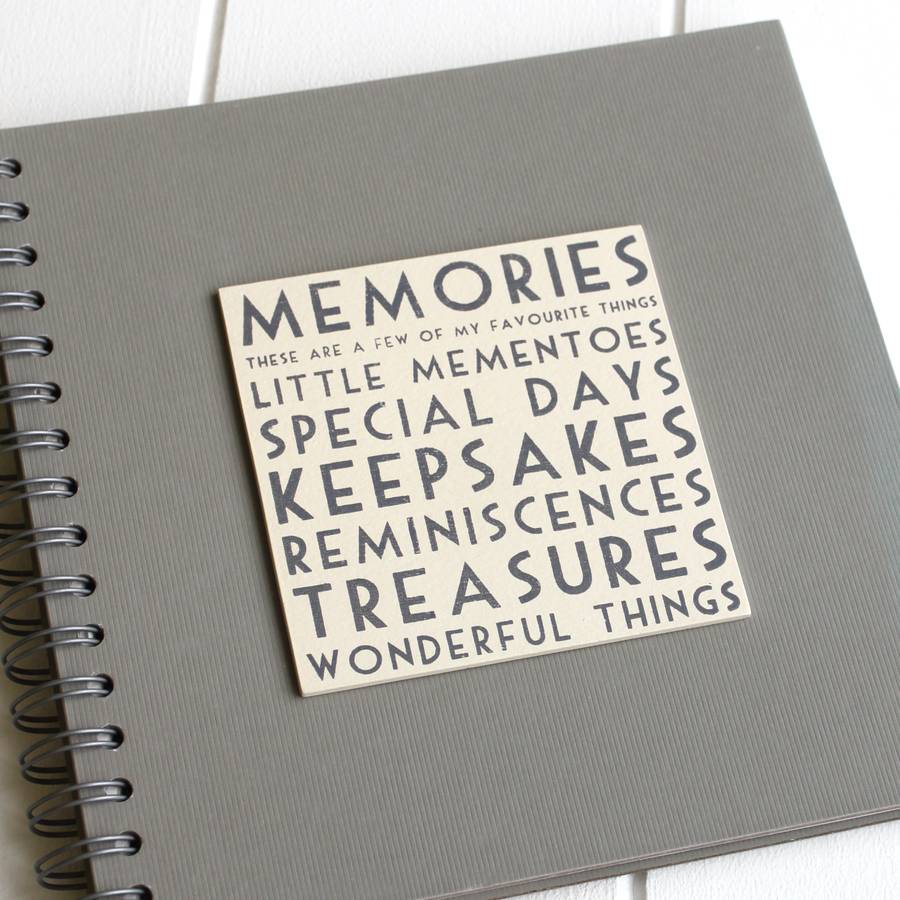 MEMORIES
THESE ARE A FEW OF MY FAVOURITE THINGS
LITTLE MEMENTOES
SPECIAL DAYS
KEEPSAKES
REMINISCENCES
TREASURES
WONDERFUL THINGS